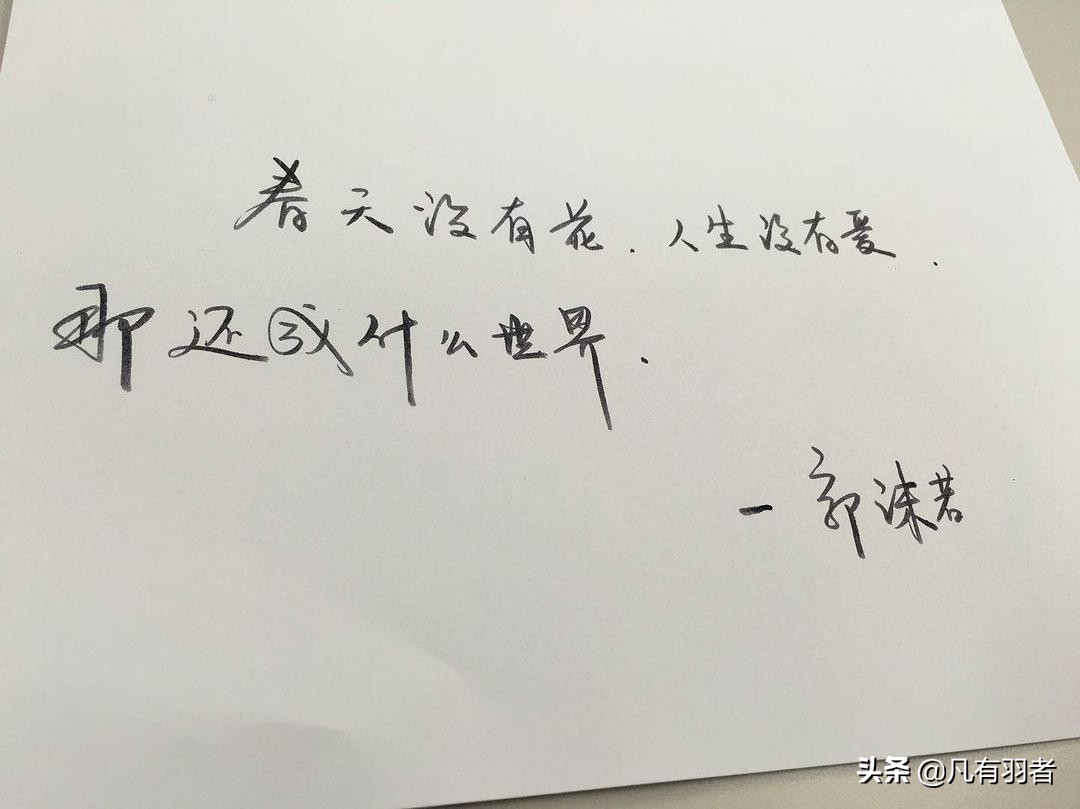 春天没有花.人生没有爱.
那还成什么世界.
一郭沫若
头条 @凡有羽者